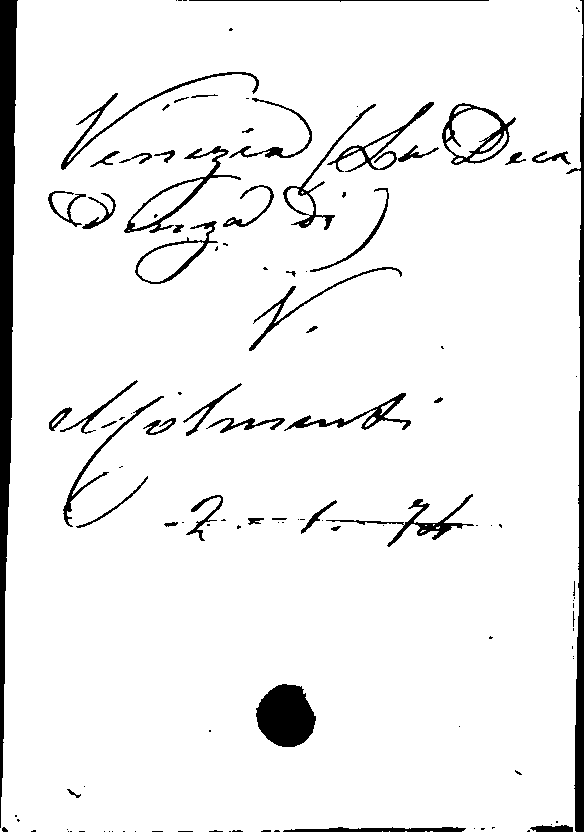 Venezia (La Deca-
denza di)
V.
Molmenti
2. - 1. 74